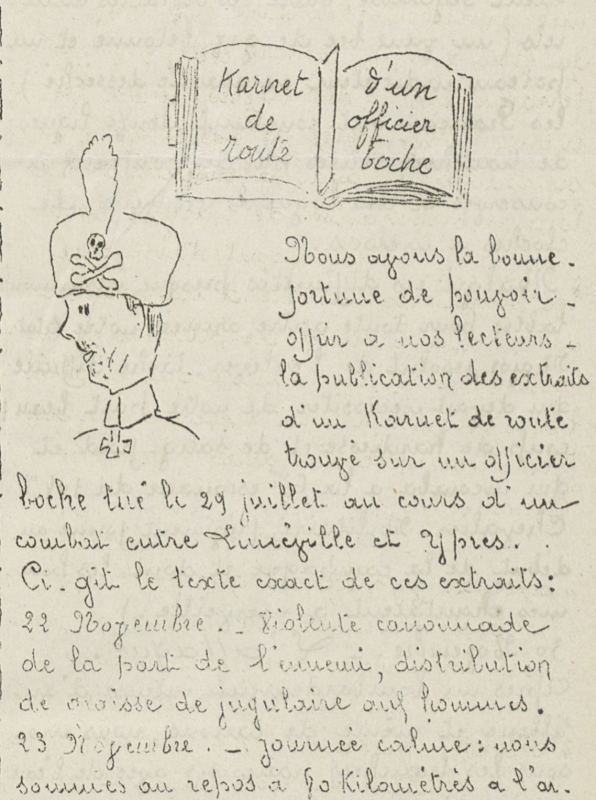 Karnet
de
route
d'un
officier
boche
Nous avons la bonne
fortune de pouvoir
offrir a nos lecteurs
la publication des extraits
d'un Karnet de route
trouvé sur un officier
boche tué le 29 juillet au cours d'un
combat entre Lunéville et Ypres.
Ci-gît le texte exact de ces extraits:
22 Novembre. _ Violente canonnade
de la part de l'ennemi, distribution
de graisse de jugulaire aux hommes.
23 Novembre. _ Journée calme: nous
sommes au repos à 90 Kilomètrès a l'ar-